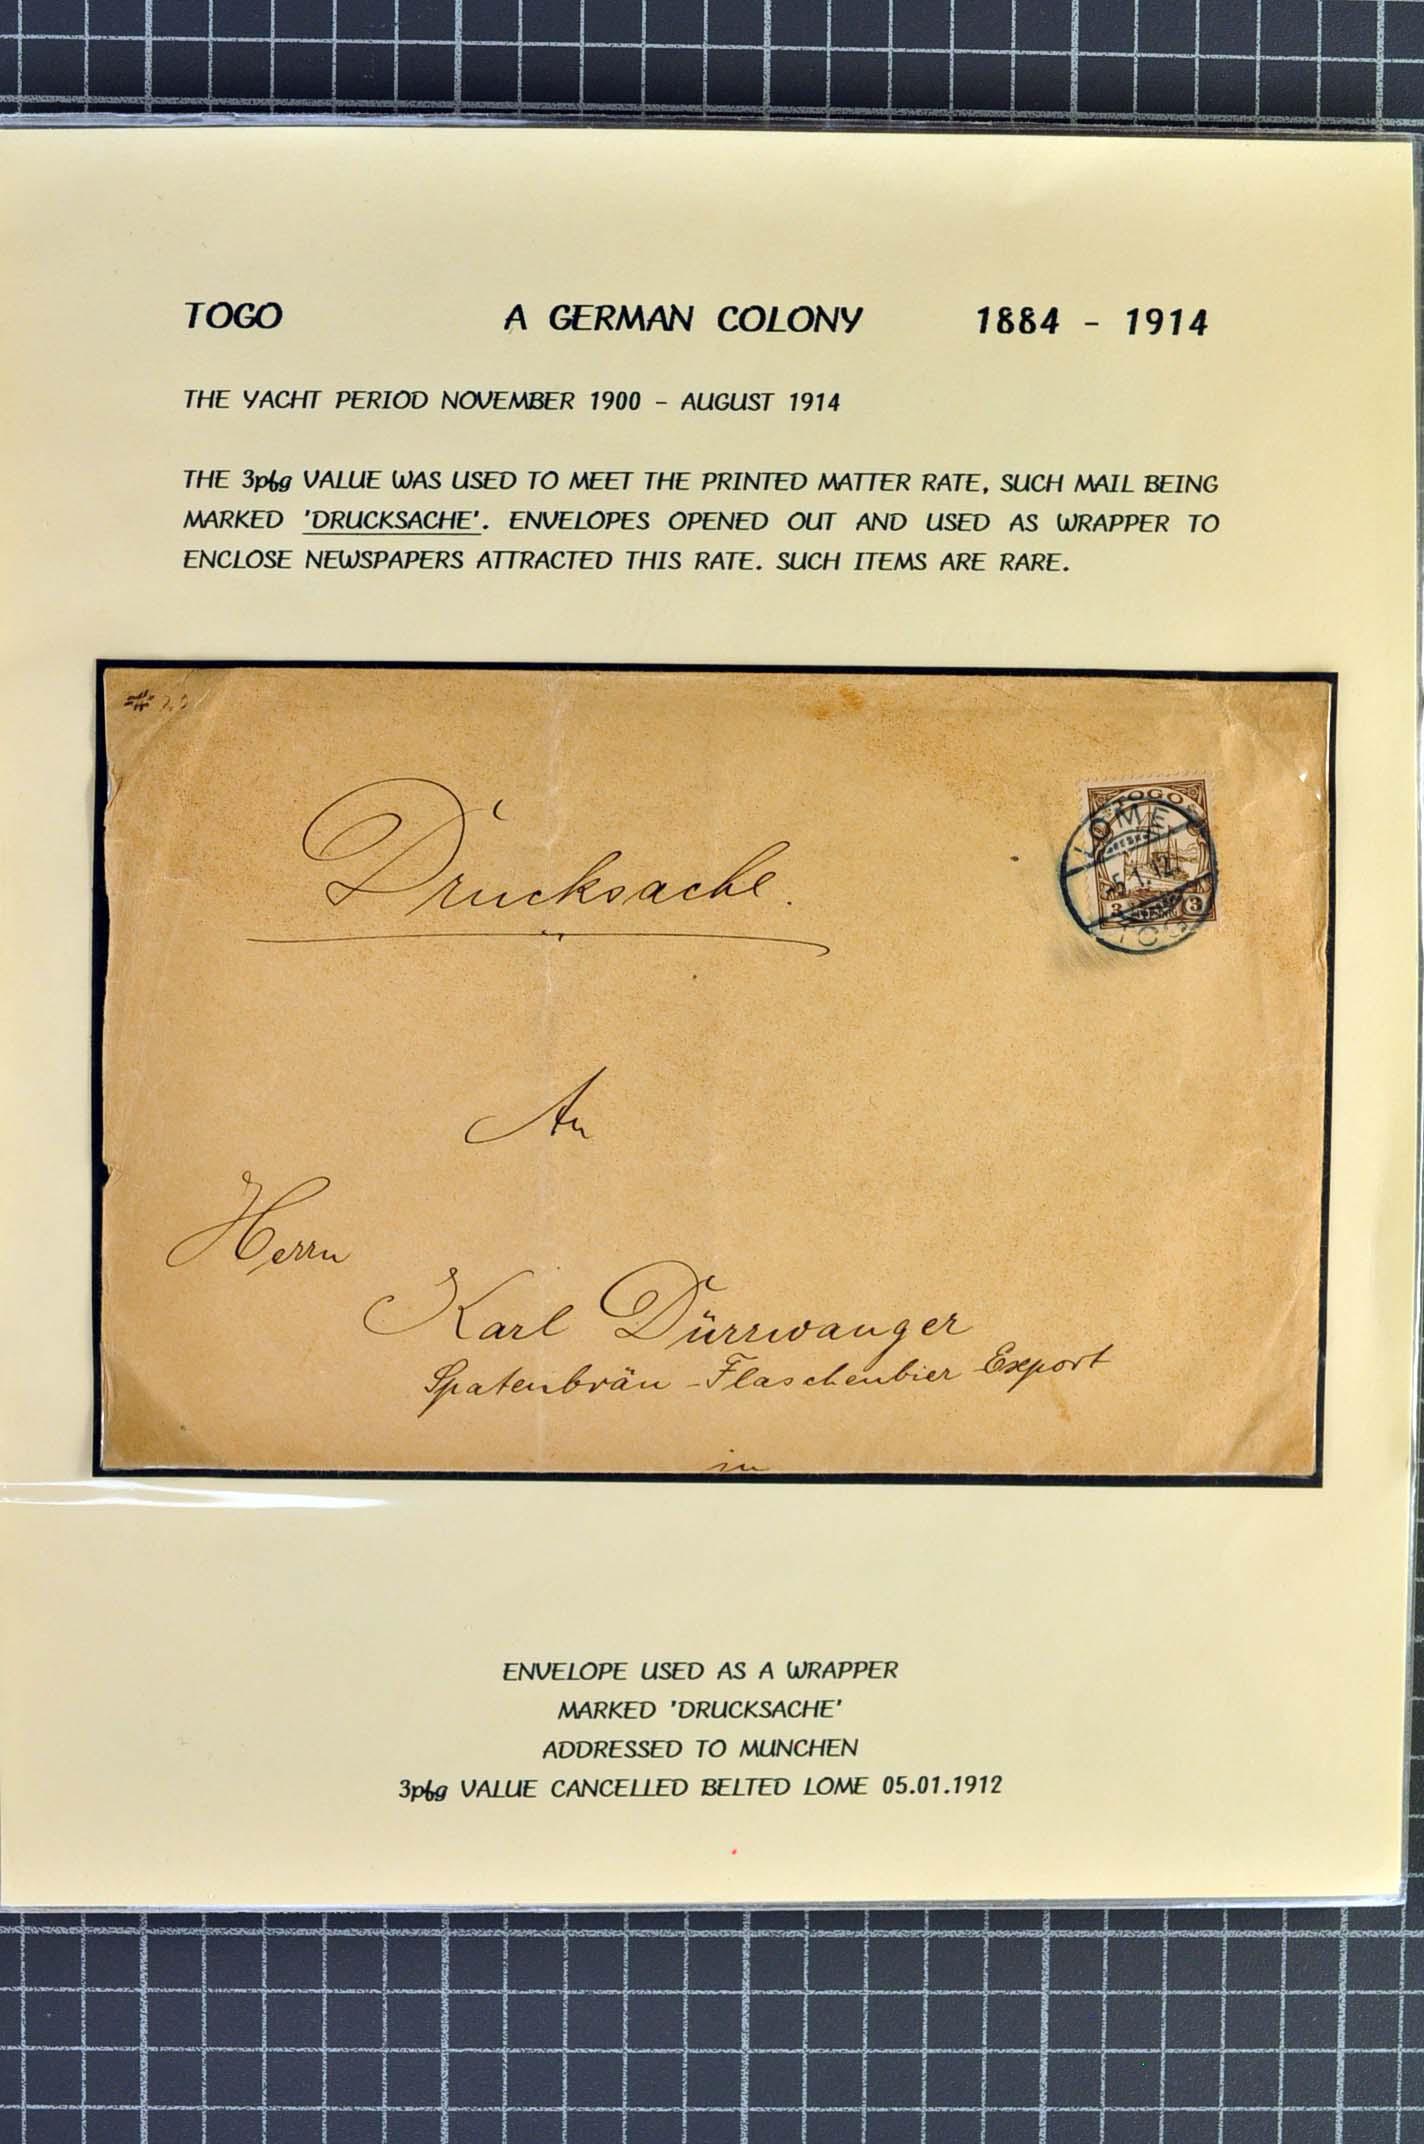 TOGO A GERMAN COLONY 1884 - 1914
THE YACHT PERIOD NOVEMBER 1900 - AUGUST 1914
THE 3pfg VALUE WAS USED TO MEET THE PRINTED MATTER RATE, SUCH MAIL BEING
MARKED 'DRUCKSACHE'. ENVELOPES OPENED OUT AND USED AS WRAPPER TO
ENCLOSE NEWSPAPERS ATTRACTED THIS RATE. SUCH ITEMS ARE RARE.
Drucksache.
TOGO
LOME
5.1.12
3 3
TOGO
An
Herrn
Karl Dürrwanger
Spatenbräu - Flaschenbier Export
in
ENVELOPE USED AS A WRAPPER
MARKED 'DRUCKSACHE'
ADDRESSED TO MUNCHEN
3pfg VALUE CANCELLED BELTED LOME 05.01.1912